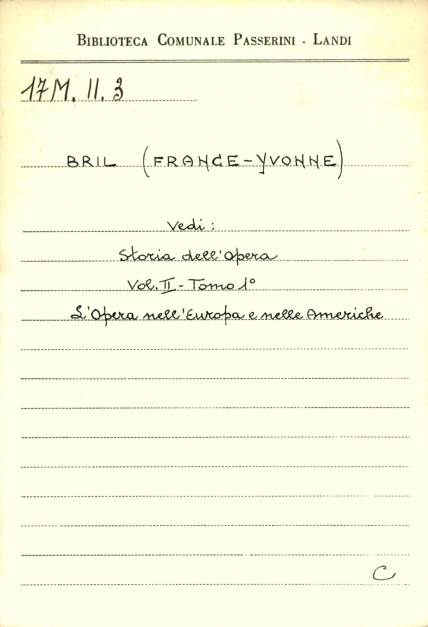 BIBLIOTECA COMUNALE PASSERINI - LANDI
17M. II. 3
BRIL (FRANCE-YVONNE)
Vedi:
Storia dell'Opera
Vol. II - Tomo 1°
L'Opera nell'Europa e nelle Americhe
C